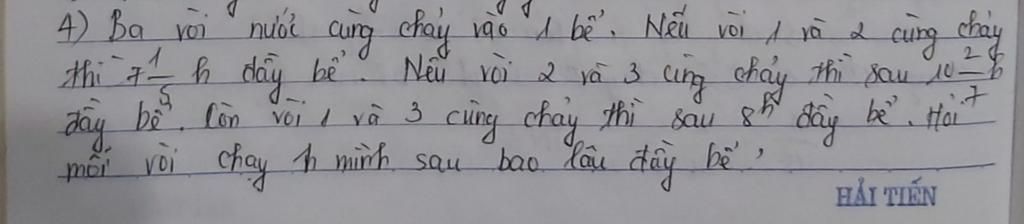 4) Ba vòi nước cùng chảy vào 1 bể. Nếu vòi 1 và 2 cùng chảy
thì 7 1/5 h đầy bể. Nếu vòi 2 và 3 cùng chảy thì sau 10 2/7 h
đầy bể. Còn vòi 1 và 3 cùng chảy thì sau 8h đầy bể. Hỏi
mỗi vòi chạy 1 mình sau bao lâu đầy bể?
HẢI TIẾN